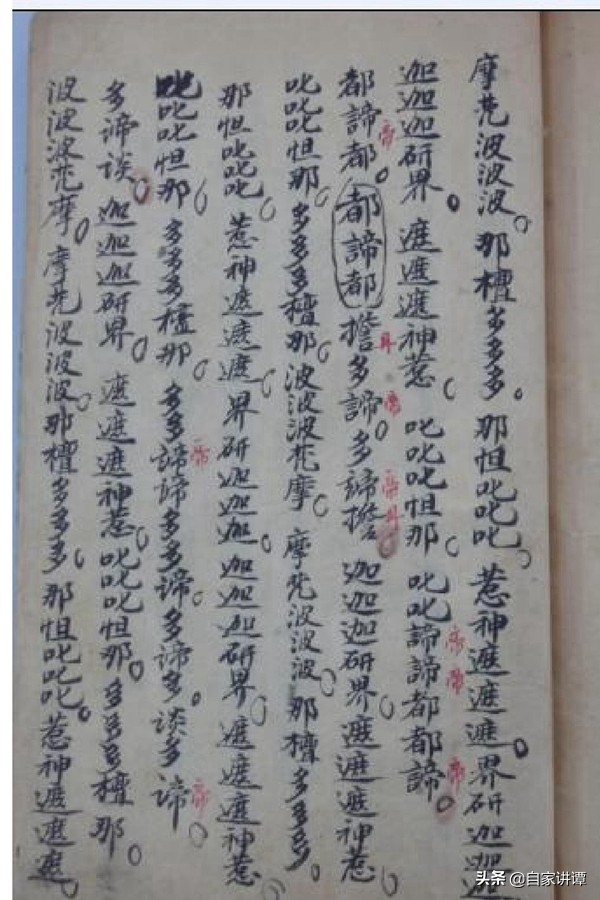 摩梵波波波。那檀多多多。那怛叱叱叱。惹神遮遮遮。界研迦迦迦
迦迦迦研界。遮遮遮神惹。叱叱叱怛那。叱叱諦諦都都諦。
帝帝帝
都諦都。都諦都擔多諦。多諦擔。迦迦迦研界。遮遮遮神惹。
帝
叱叱叱怛那。多多多檀那。波波波梵摩。摩梵波波波。那檀多多多。
那怛叱叱叱。惹神遮遮遮。界研迦迦迦。迦迦迦研界。遮遮遮神惹。
叱叱叱怛那。多多多檀那。多多諦諦多多諦。多諦多。談多諦。
帝帝
多諦談。迦迦迦研界。遮遮遮神惹。叱叱叱怛那。多多多檀那。
波波波梵摩。摩梵波波波。那檀多多多。那怛叱叱叱。惹神遮遮遮。
头条 @自家讲谭